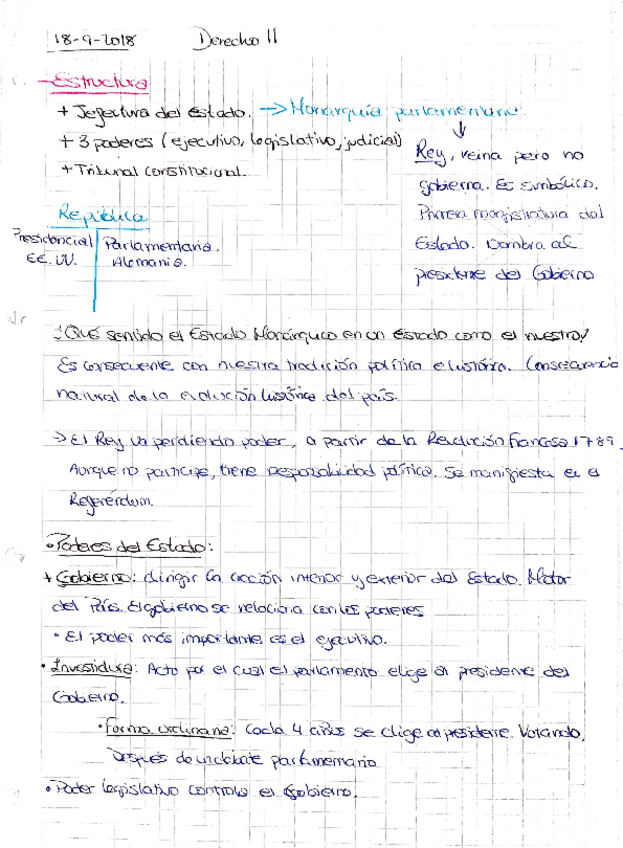 18-9-2018 Derecho II
- Estructura
+ Jefectura del Estado. → Monarquía parlamentaria
+ 3 poderes (ejecutivo, legislativo, judicial)
+ Tribunal constitucional.
Rey, reina pero no
gobierna. Es simbólico.
Primera magistratura del
Estado. Nombra al
presidente del Gobierno
República
Presidencial Parlamentaria.
EE.UU. Alemania.
¿Qué sentido el Estado Monárquico en un Estado como el nuestro?
Es consecuente con nuestra tradición política e histórica. Consecuencia
natural de la evolución histórica del país.
→ El Rey va perdiendo poder, a partir de la Revolución francesa 1789.
Aunque no participe, tiene responsabilidad política. Se manifiesta en el
Referéndum.
• Poderes del Estado:
+ Gobierno: dirigir la acción interior y exterior del Estado. Motor
del País. El gobierno se relaciona con los poderes
• El poder más importante es el ejecutivo.
• Investidura: Acto por el cual el parlamento elige al presidente del
Gobierno.
• Forma ordinaria: Cada 4 años se elige al presidente. Votando,
después de un debate parlamentario
• Poder legislativo controla el Gobierno.